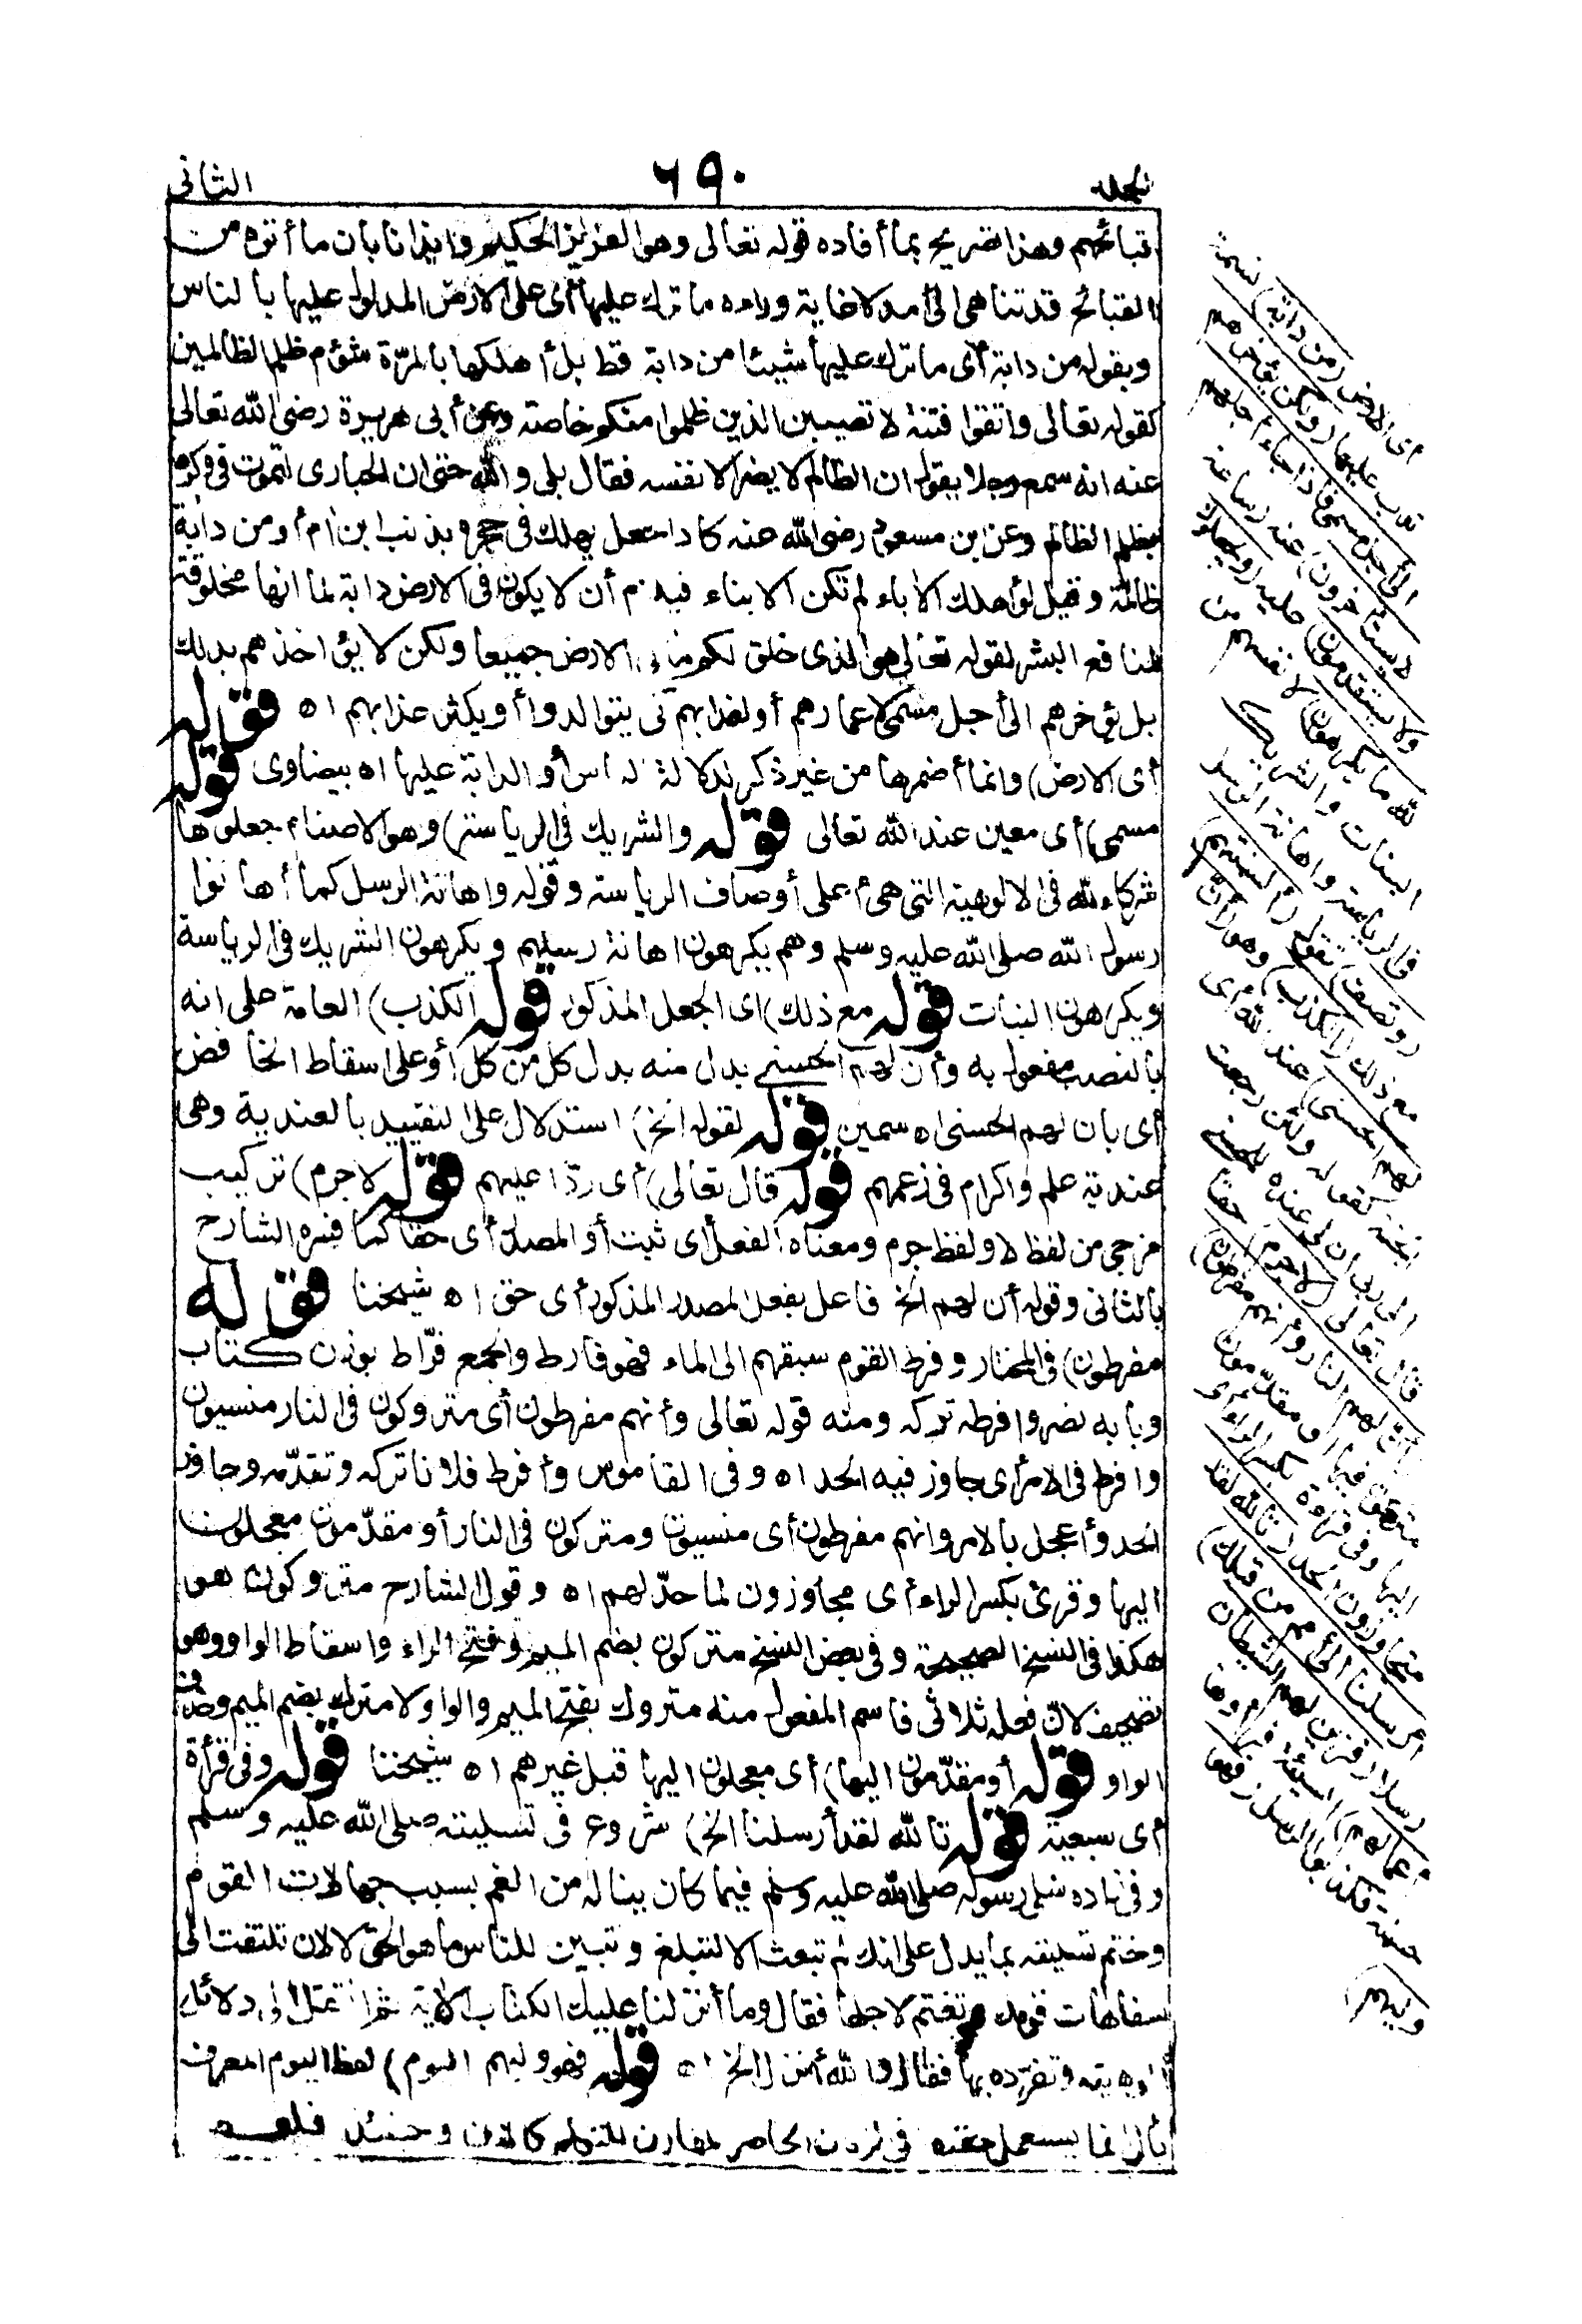 المجلد
٦٩٠
الثانى
قبائحهم وهذا تصريح بما أفاده قوله تعالى وهو العزيز الحكيم وايذانا بان ما أتوه من
القبائح قد تناهى الى أمد لا غاية وراءه ما ترك عليها أى على الارض المدلول عليها بالناس
وبقوله من دابة أى ما ترك عليها شيئا من دابة قط بل أهلكها بالمرّة شؤم ظلم الظالمين
كقوله تعالى واتقوا فتنة لا تصيبن الذين ظلموا منكم خاصة وعن أبى هريرة رضى الله تعالى
عنه انه سمع رجلا يقول ان الظالم لا يضر الا نفسه فقال بلى والله حتى ان الحبارى لتموت فى وكره
بظلم الظالم وعن ابن مسعود رضى الله عنه كاد الجعل يهلك فى جحره بذنب ابن أم أو من دابة
ظالمة وقيل لو أهلك الآباء لم تكن الابناء فيلزم أن لا يكون فى الارض دابة لما انها مخلوقة
لمنافع البشر لقوله تعالى هو الذى خلق لكم ما فى الارض جميعا ولكن لا يؤاخذهم بذلك
بل يؤخرهم الى أجل مسمى لاعمارهم أو لعذابهم كى يتوالدوا أو يكثر عذابهم اه قوله
أى الارض) وانما أضمرها من غير ذكر لدلالة الناس أو الدابة عليها اه بيضاوى قوله
مسمى) أى معين عند الله تعالى قوله والشريك فى الرياسة) وهو الاصنام جعلوها
شركاء لله فى الالوهية التى هى أعلى أوصاف الرياسة وقوله واهانة الرسل كما أهانوا
رسول الله صلى الله عليه وسلم وهم يكرهون اهانة رسلهم ويكرهون الشريك فى الرياسة
ويكرهون البنات قوله مع ذلك) اى الجعل المذكور قوله الكذب) العامة على انه
بالنصب مفعول به وأن لهم الحسنى بدل منه بدل كل من كل أو على اسقاط الخافض
أى بان لهم الحسنى اه سمين قوله لقوله الخ) استدلال على التقييد بالعندية وهى
عندية علم واكرام فى زعمهم قوله قال تعالى) أى ردّا عليهم قوله لا جرم) تركيب
مزجى من لفظ لا ولفظ جرم ومعناه الفعل أى ثبت أو المصدر أى حقا كما فسره الشارح
بالثانى وقوله أن لهم الخ فاعل بفعل المصدر المذكور أى حق اه شيخنا قوله
مفرطون) فى المختار وفرط القوم سبقهم الى الماء فهو فارط والجمع فرّاط بوزن كتاب
وبابه نصر وافرطه تركه ومنه قوله تعالى وأنهم مفرطون أى متروكون فى النار منسيون
وافرط فى الامر أى جاوز فيه الحد اه وفى القاموس وأفرط فلانا تركه وتقدّمه وجاوز
الحد وأعجل بالامر وانهم مفرطون أى منسيون ومتركون فى النار أو مقدّمون معجلون
اليها وقرئ بكسر الراء أى مجاوزون لما حدّ لهم اه وقول الشارح متروكون هو
هكذا فى النسخ الصحيحة وفى بعض النسخ متركون بضم الميم وفتح الراء واسقاط الواو وهو
تصحيف لانّ فعله ثلاثى فاسم المفعول منه متروك بفتح الميم والواو لا مترك بضم الميم وحذف
الواو قوله أو مقدّمون اليها) أى معجلون اليها قبل غيرهم اه شيخنا قوله وفى قرأة
أى سبعية قوله تالله لقد أرسلنا الخ) شروع فى تسليته صلى الله عليه وسلم
وفى زاده سلى رسوله صلى الله عليه وسلم فيما كان يناله من الغم بسبب جهالات القوم
وختم تسليته بما يدل على انك لم تبعث الا لتبلغ وتبين للناس ما هو الحق لا لان تلتفت الى
سفاهات قومك وتغتم لاجلها فقال وما أنزلنا عليك الكتاب الآية ثم انتقل الى دلائل
الوهيته وتفرّده بها فقال والله أنزل الخ اه قوله فهو وليهم اليوم) لفظ اليوم المعرف
بأل انما يستعمل حقيقة فى الزمان الحاضر المقارن للتكلم كالآن وحينئذ فلفظ
أى الارض (من دابة) نسمة
تدب عليها (ولكن يؤخرهم
الى أجل مسمى فاذا جاء أجلهم
لا يستأخرون) عنه (ساعة
ولا يستقدمون) عليه (ويجعلون
لله ما يكرهون) لانفسهم من
البنات والشريك
فى الرياسة واهانة الرسل
(وتصف) تقول (ألسنتهم)
مع ذلك (الكذب) وهو (أنّ
لهم الحسنى) عند الله أى
الجنة كقوله ولئن رجعت
الى ربى ان لى عنده للحسنى
قال تعالى (لا جرم) حقا
(أنّ لهم النار وأنهم مفرطون)
متروكون فيها أو مقدّمون
اليها وفى قراءة بكسر الراء أى
متجاوزون الحد (تالله لقد
أرسلنا الى أمم من قبلك)
رسلا (فزين لهم الشيطان
أعمالهم) السيئة فرأوها
حسنة فكذبوا الرسل (فهو
وليهم)